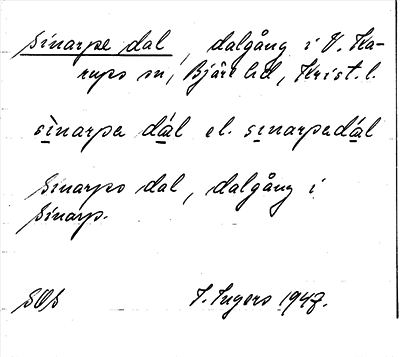 Sinarpe dal, dalgång i V. Ka-
rups sn, Bjäre hd, Krist. l.
sìnarpe dál el. sınarpedál
Sinarps dal, dalgång i
Sinarp.
SOS I. Ingers 1947.